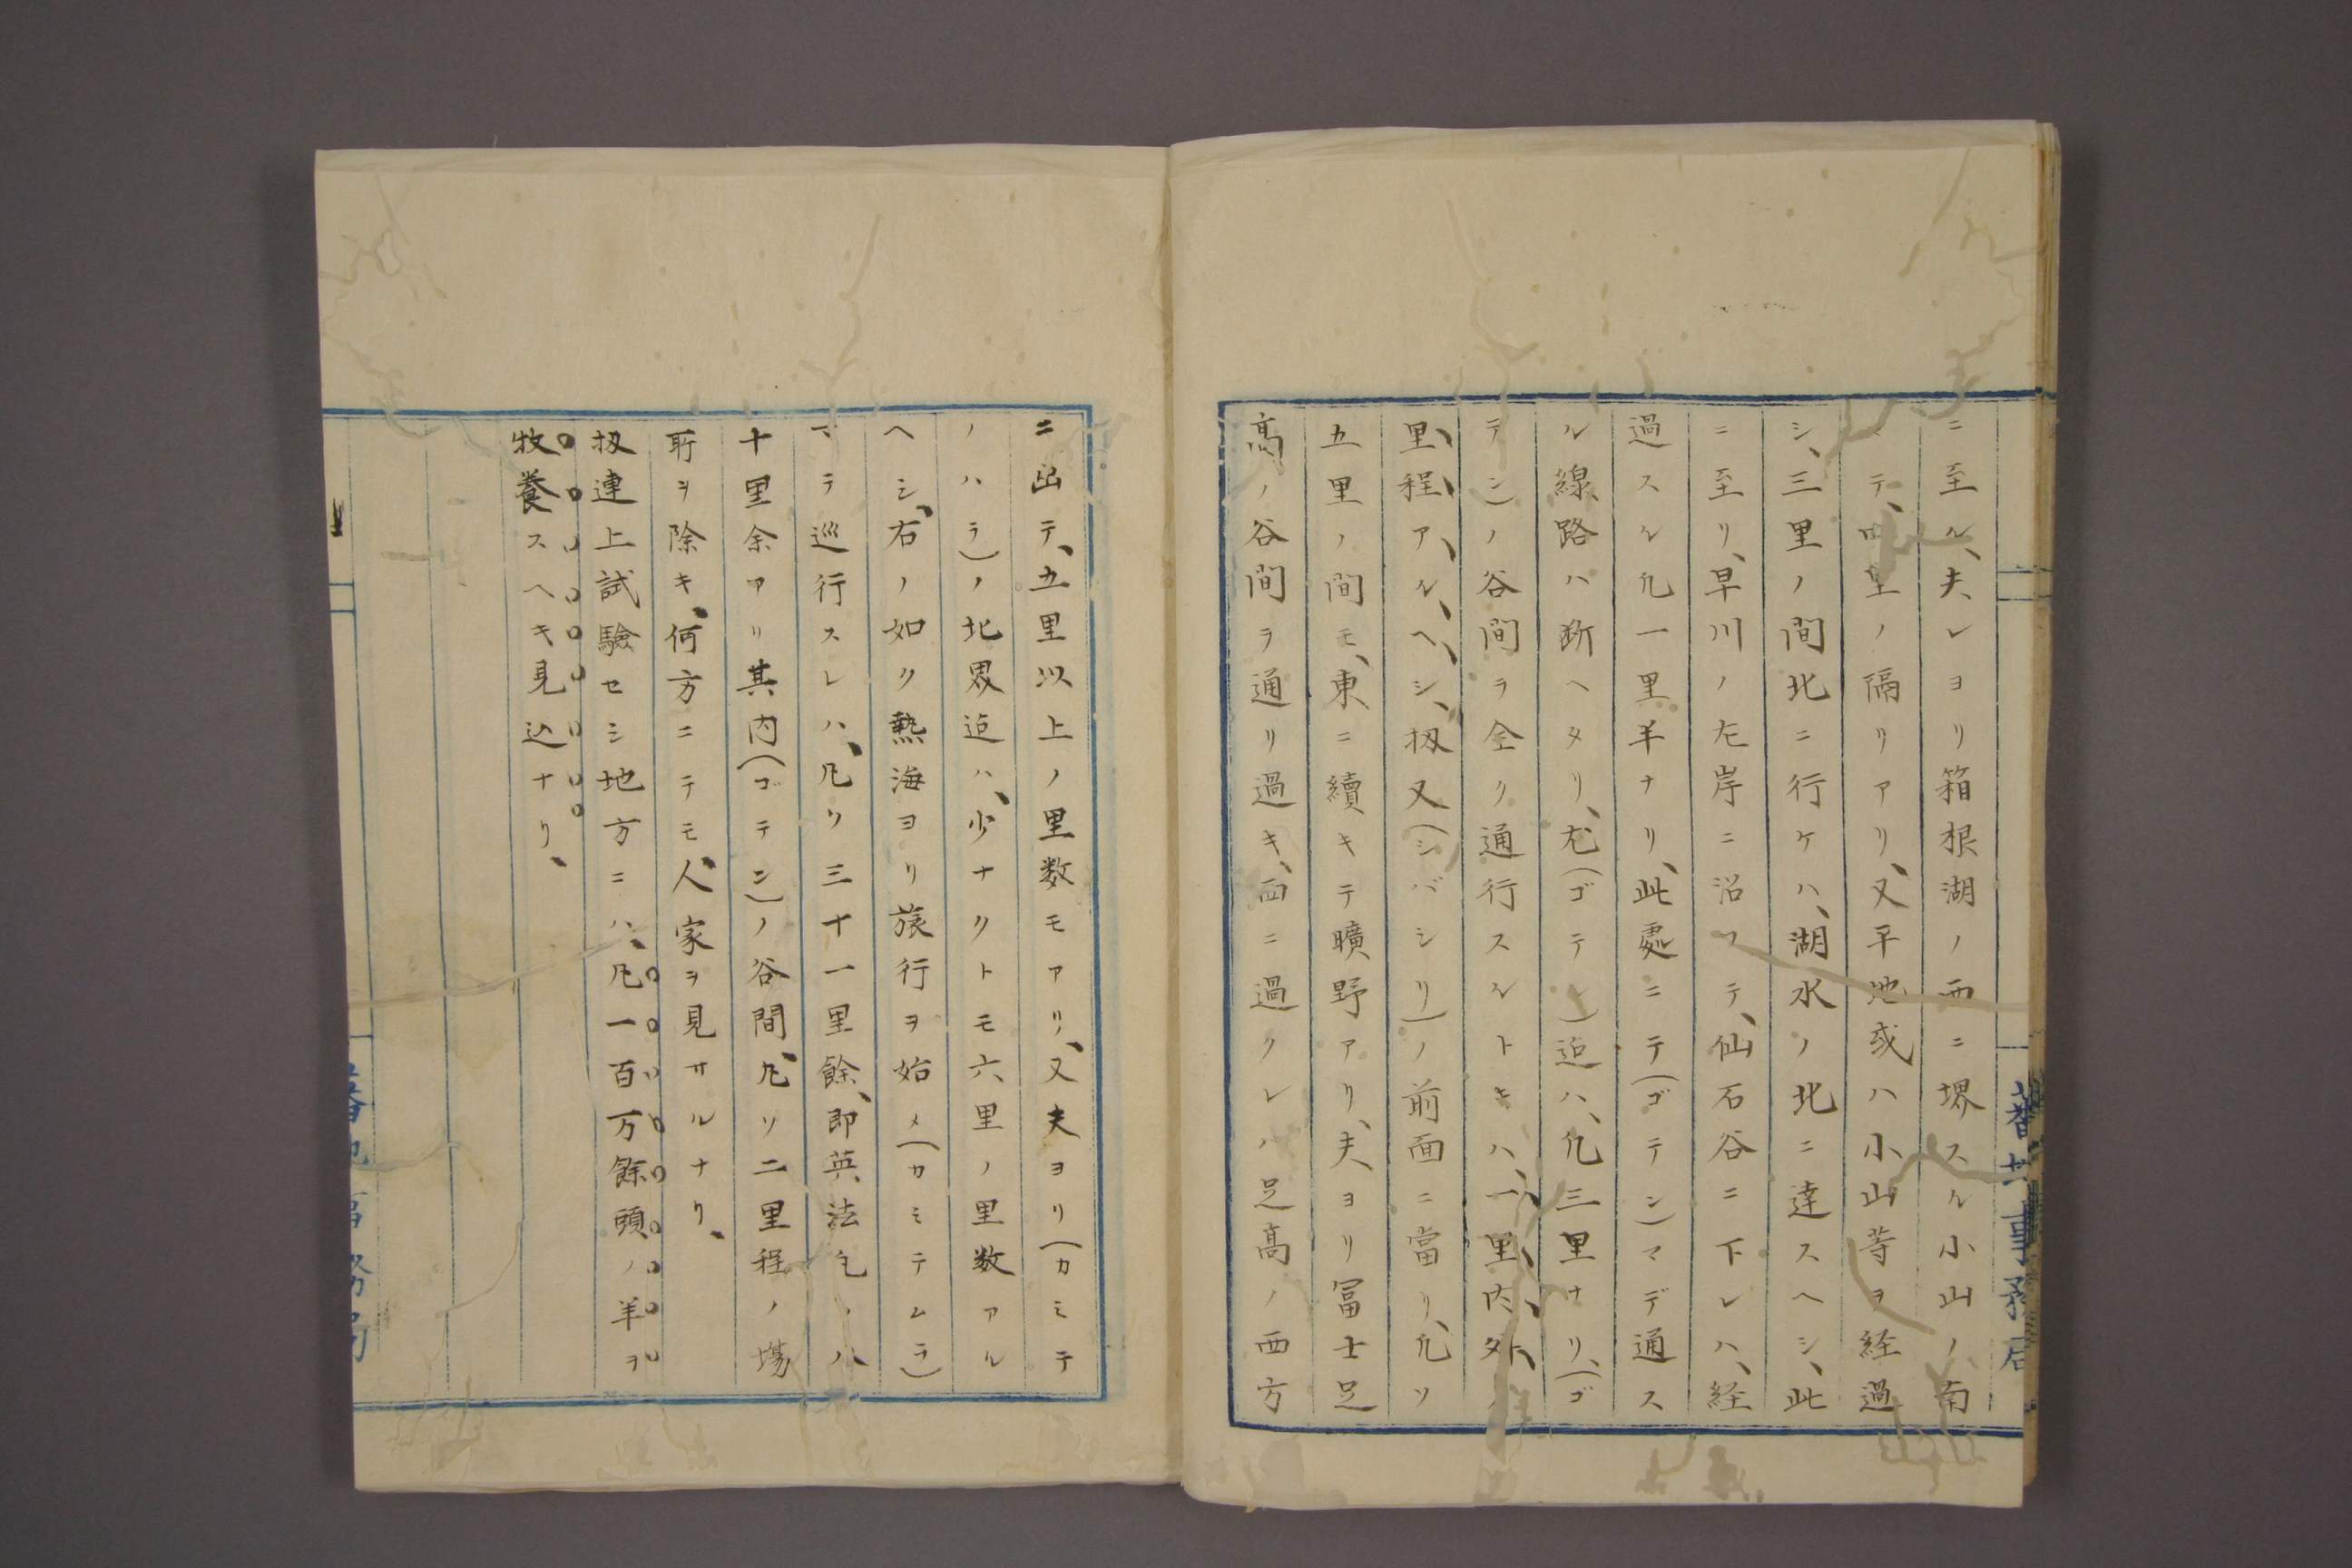 ニ至ル、夫レヨリ箱根湖ノ西ニ堺スル小山ノ南
テ、四里ノ隔リアリ、又平地或ハ小山等ヲ経過
シ、三里ノ間北ニ行ケハ、湖水ノ北ニ達スヘシ、此
ニ至リ、早川ノ左岸ニ沿フテ、仙石谷ニ下レハ、経
過スル凢一里半ナリ、此處ニテ(ゴテン)マデ通ス
ル線路ハ断ヘタリ、尤(ゴテン)迠ハ、凢三里ナリ、(ゴ
テン)ノ谷間ヲ全ク通行スルトキハ、一里内外ノ
里程アルヘシ、扨又(シバシリ)ノ前面ニ當リ、凢ソ
五里ノ間モ、東ニ續キテ曠野アリ、夫ヨリ冨士足
高ノ谷間ヲ通リ過キ、西ニ過クレハ足高ノ西方
ニ出テ、五里以上ノ里数モアリ、又夫ヨリ(カミテ
ノハラ)ノ北界迠ハ、少ナクトモ六里ノ里数アル
ヘシ、右ノ如ク熱海ヨリ旅行ヲ始メ(カミテムラ)
マテ巡行スレハ、凢ソ三十一里餘、即英法七八
十里余アリ其内(ゴテン)ノ谷間、凢ソ二里程ノ塲
所ヲ除キ、何方ニテモ人家ヲ見サルナリ、
扨連上試驗セシ地方ニハ、凢一百万餘頭ノ羊ヲ
牧養スヘキ見込ナリ、
蕃地事務局